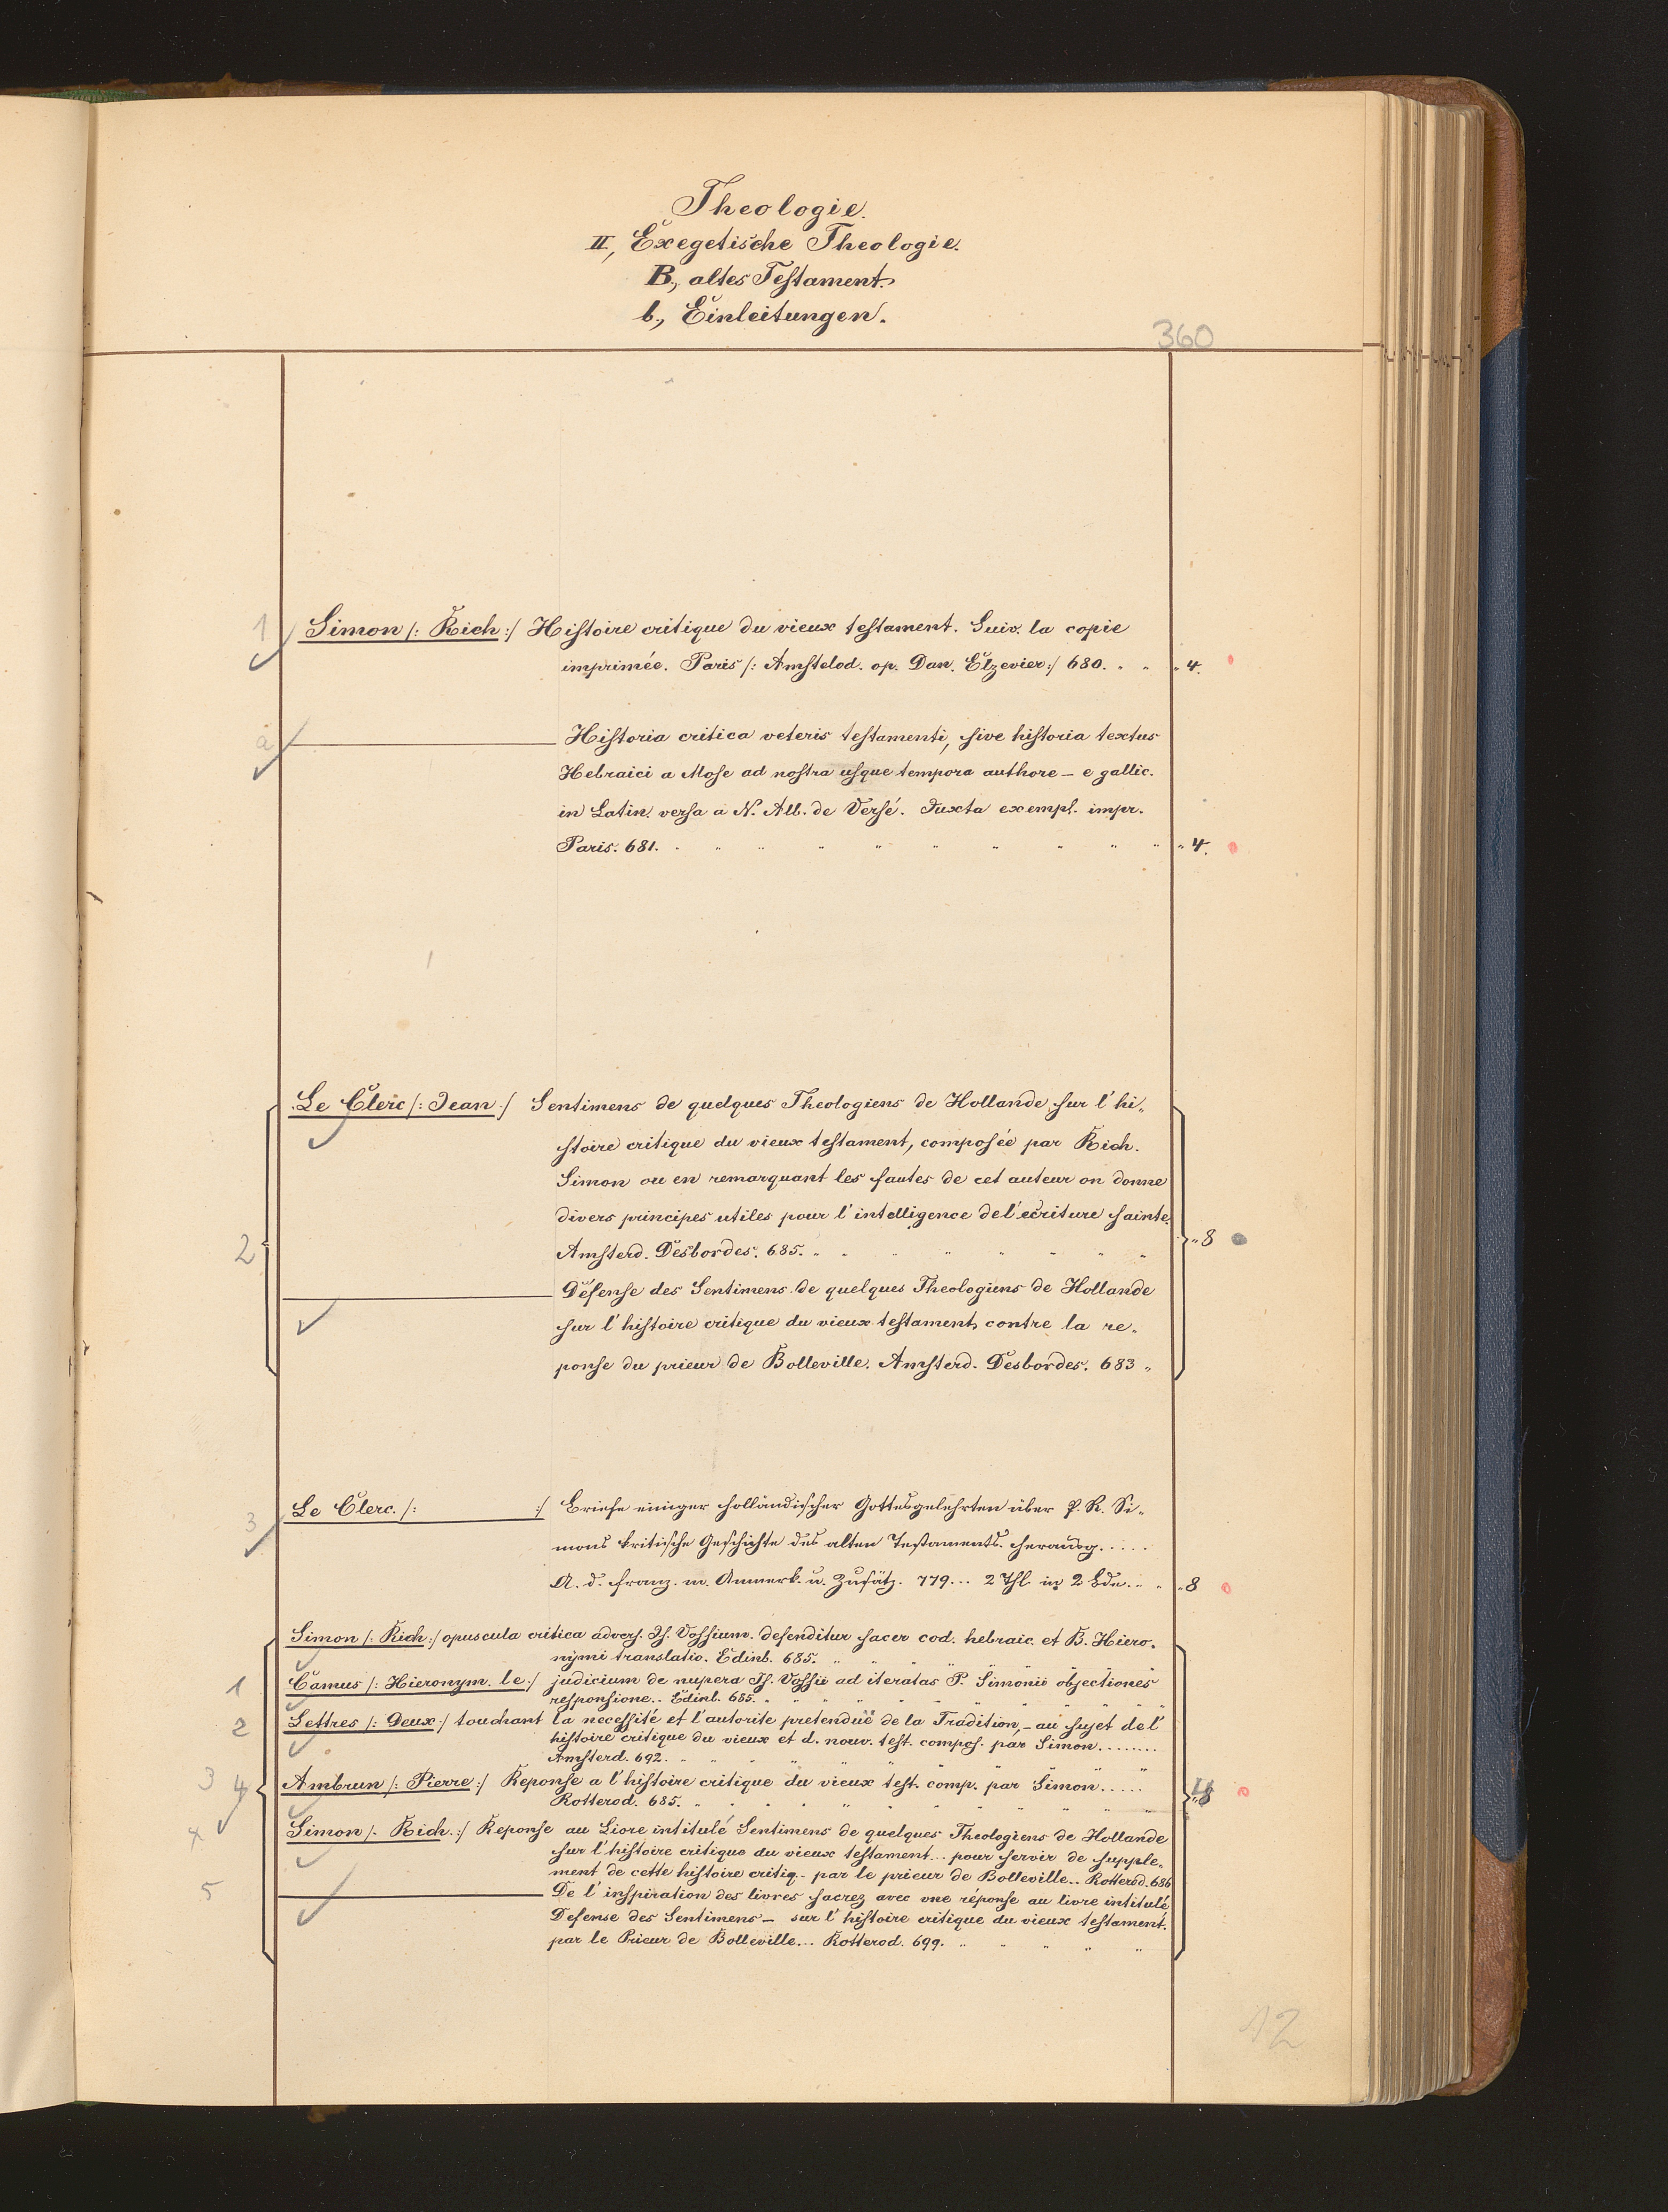 Theologie.
II, Exegetische Theologie.
B., altes Testament.
b., Einleitungen.
360
1 Simon /: Rich :/ Histoire critique du vieux testament. Suiv. la copie
imprimée. Paris /: Amstelod. op. Dan. Elzevier :/ 680. " " " 4.
a Historia critica veteris testamenti, sive historia textus
Hebraici a Mose ad nostra usque tempora authore – e gallic.
in Latin. versa a N. Alb. de Versé. Juxta exempl. impr.
Paris. 681. " " " " " " " " " " 4.
Le Clerc /: Jean :/ Sentimens de quelques Theologiens de Hollande sur l'hi„
stoire critique du vieux testament, composée par Rich.
Simon ou en remarquant les fautes de cet auteur on donne
divers principes utiles pour l'intelligence de l'ecriture sainte.
2 Amsterd. Desbordes. 685. " " " " " " " " 8
Défense des Sentimens de quelques Theologiens de Hollande
sur l'histoire critique du vieux testament, contre la re„
ponse du prieur de Bolleville. Amsterd. Desbordes. 683 "
3 Le Clerc. /: :/ Briefe einiger holländischer Gottesgelehrten über P. R. Si„
mons kritische Geschichte des alten Testaments. herausg. ....
A. d. franz. m. Anmerk. u. Zusätz. 779... 2 Thl. in 2 Bde. " " " 8
Simon /: Rich :/ opuscula critica advers. Is. Vossium. defenditur sacer cod. hebraic. et B. Hiero„
nymi translatio. Edinb. 685. " " " " " "
1 Camus /: Hieronym. le :/ judicium de nupera Is. Vossii ad iteratas P. Simonii objectiones
responsione.. Edinb. 685. " " " " " " "
2 Lettres /: Deux :/ touchant la necessité et l'autorite pretenduë de la Tradition, – au sujet de l'
histoire critique du vieux et d. nouv. test. compos. par Simon ........
Amsterd. 692. " " " " " " "
3 4 Ambrun /: Pierre :/ Reponse a l'histoire critique du vieux test. comp. par Simon .....
Rotterod. 685. " " " " " " " " 8
4 Simon /: Rich. :/ Reponse au Livre intitulé Sentimens de quelques Theologiens de Hollande
sur l'histoire critique du vieux testament... pour servir de supple„
ment de cette histoire critiq. - par le prieur de Bolleville.. Rotterod. 686
5 De l'inspiration des livres sacrez avec une réponse au livre intitulé
Defense des Sentimens – sur l'histoire critique du vieux testament.
par le Prieur de Bolleville... Rotterod. 699. " " " " "
12